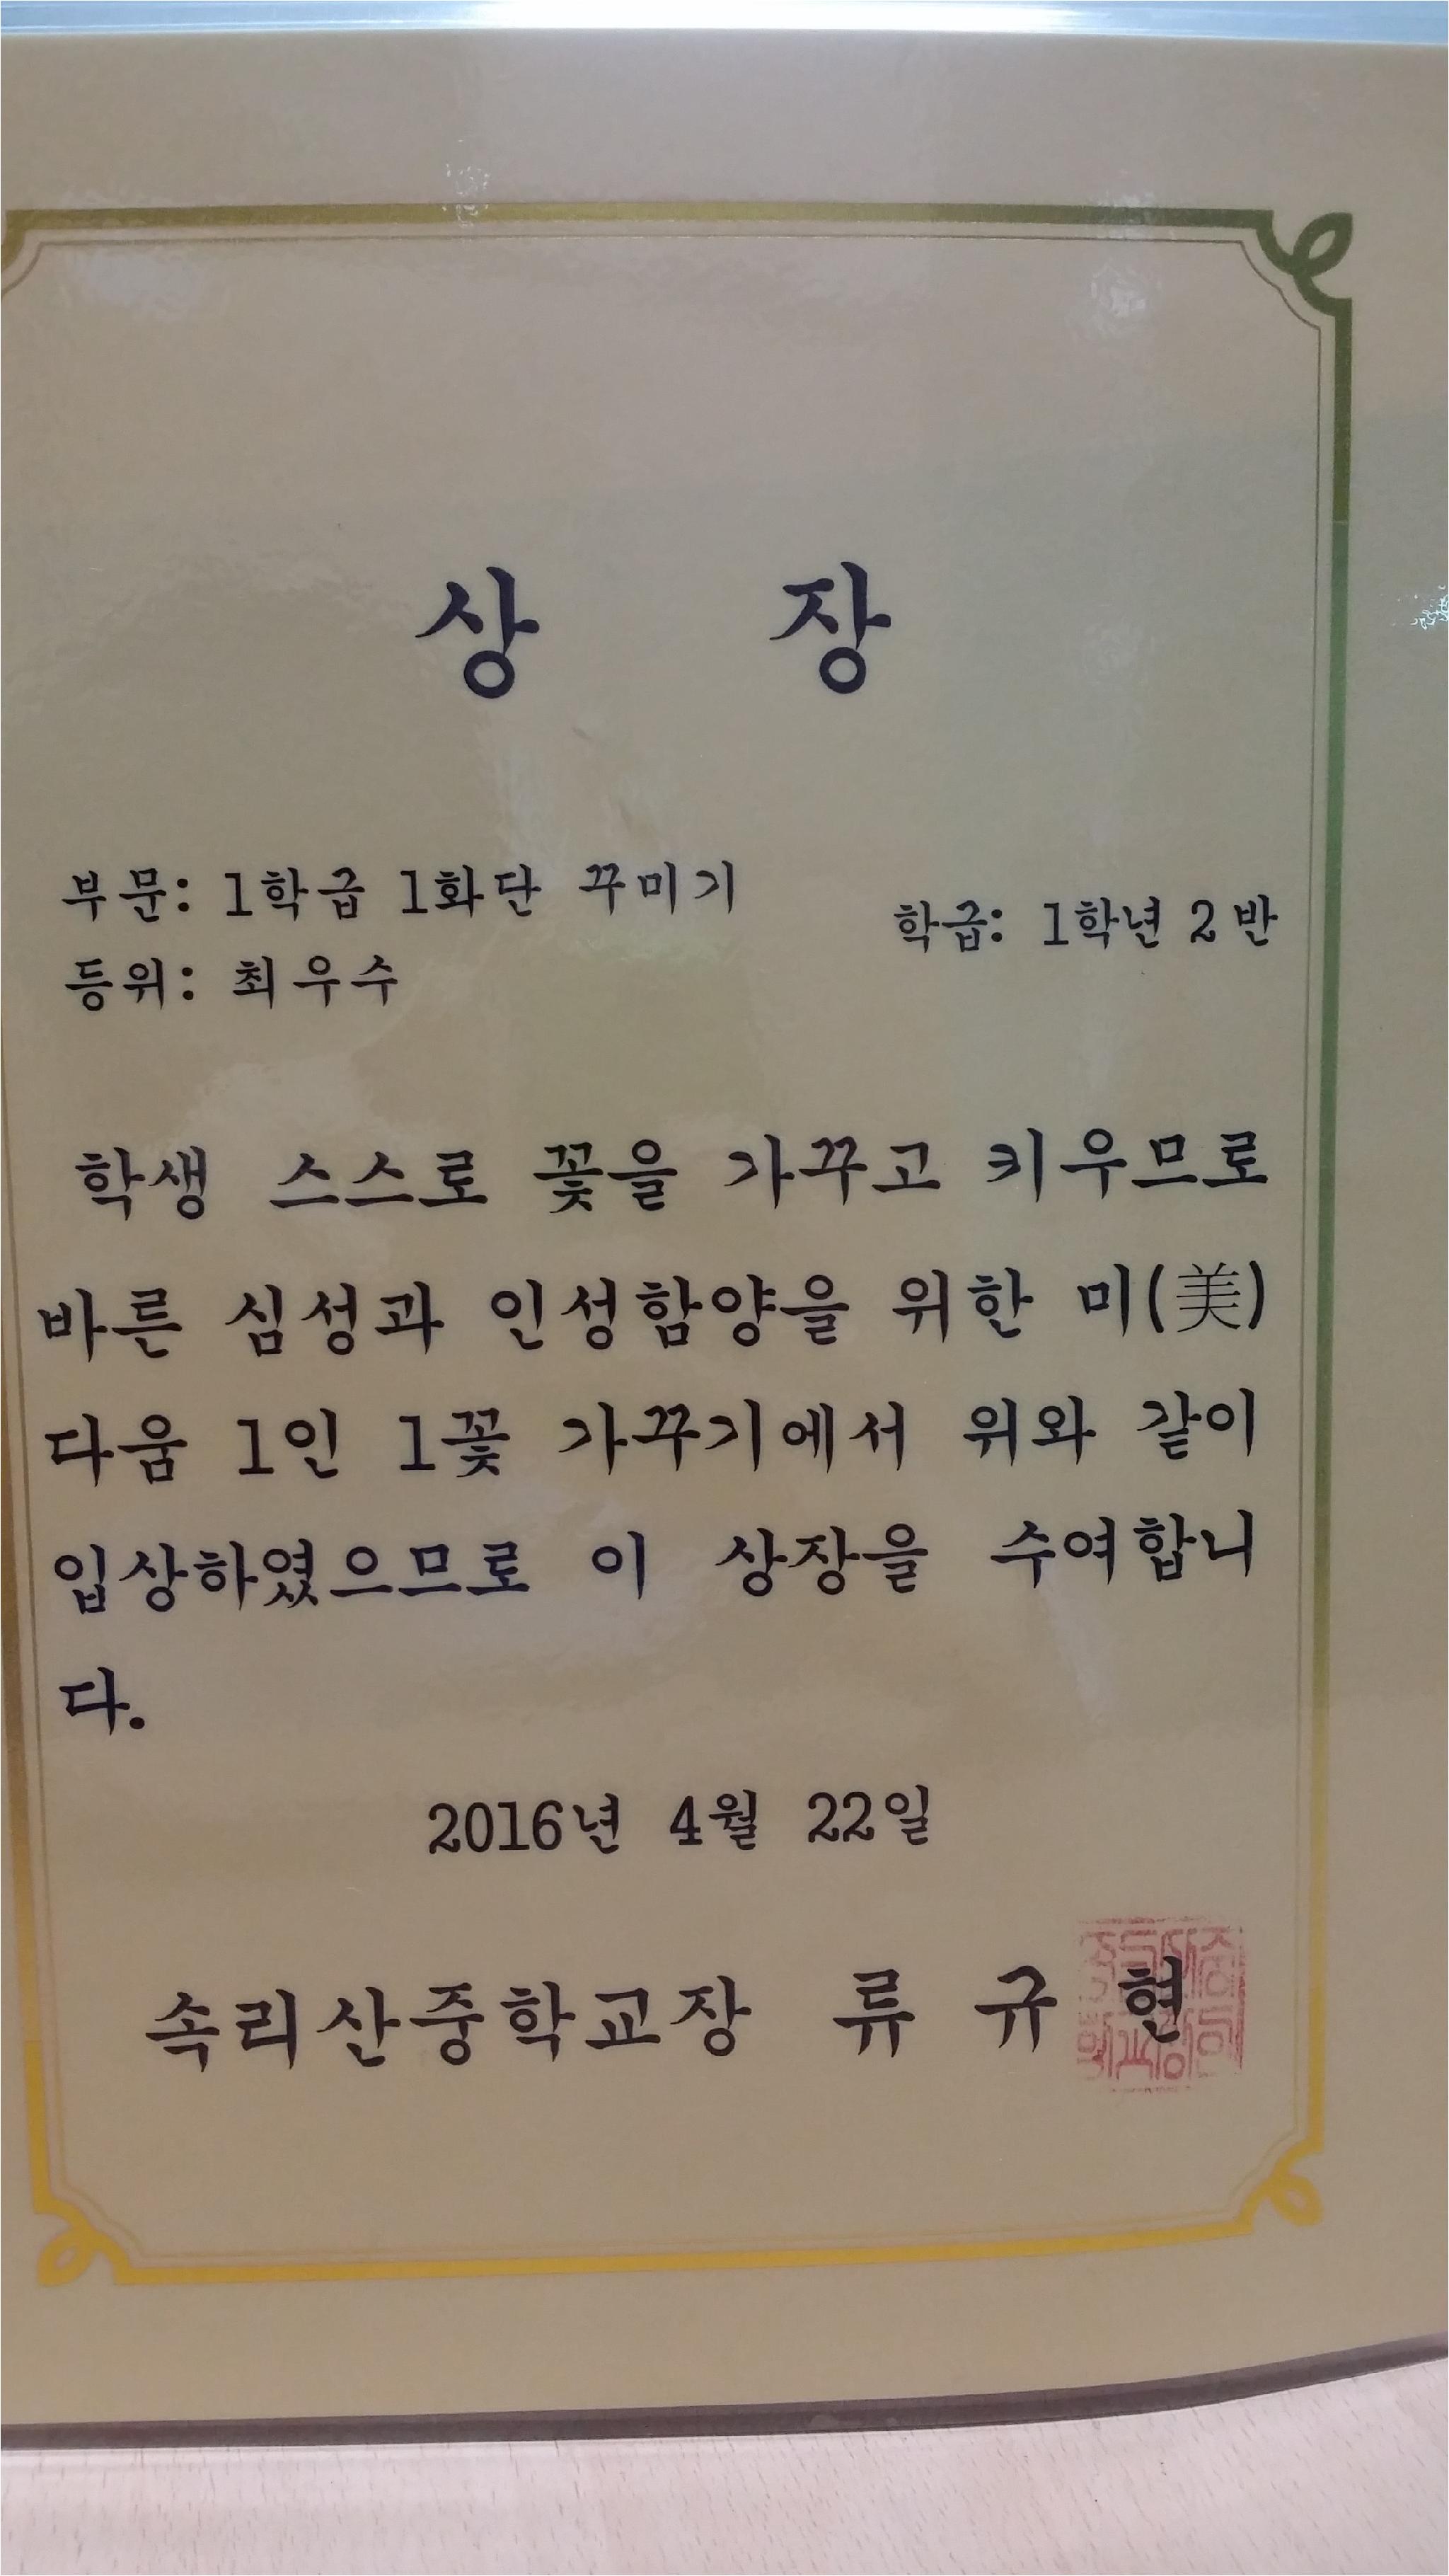 상 장
부문: 1학급 1화단 꾸미기
학급: 1학년 2반
등위: 최우수
학생 스스로 꽃을 가꾸고 키우므로
바른 심성과 인성함양을 위한 미(美)
다움 1인 1꽃 가꾸기에서 위와 같이
입상하였으므로 이 상장을 수여합니
다.
2016년 4월 22일
속리산중학교장 류 규 현